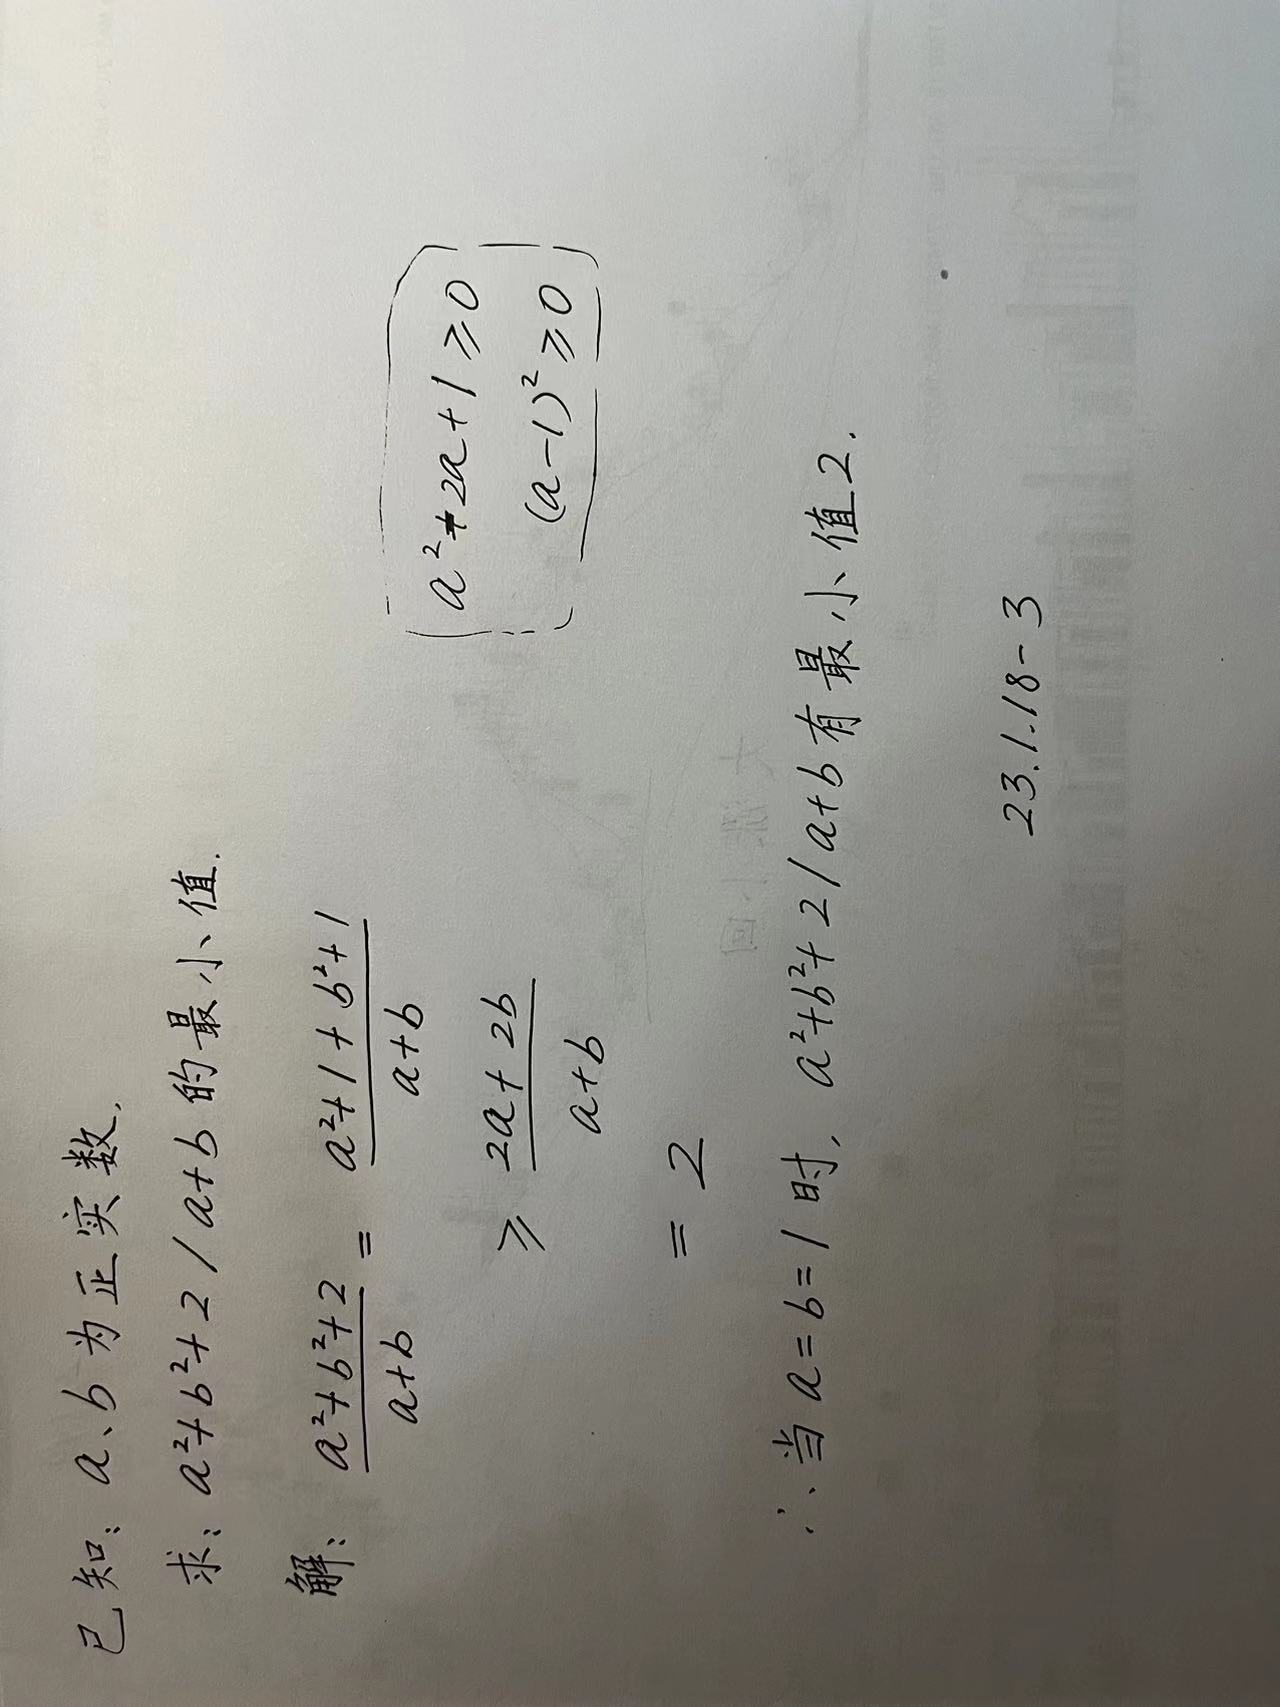 已知：a、b为正实数.
求：a²+b²+2/a+b的最小值.
解： a²+b²+2 / a+b = a²+1+b²+1 / a+b
≥ 2a+2b / a+b
= 2
a²-2a+1≥0
(a-1)²≥0
∴当a=b=1时, a²+b²+2/a+b有最小值2.
23.1.18-3
大涨小回